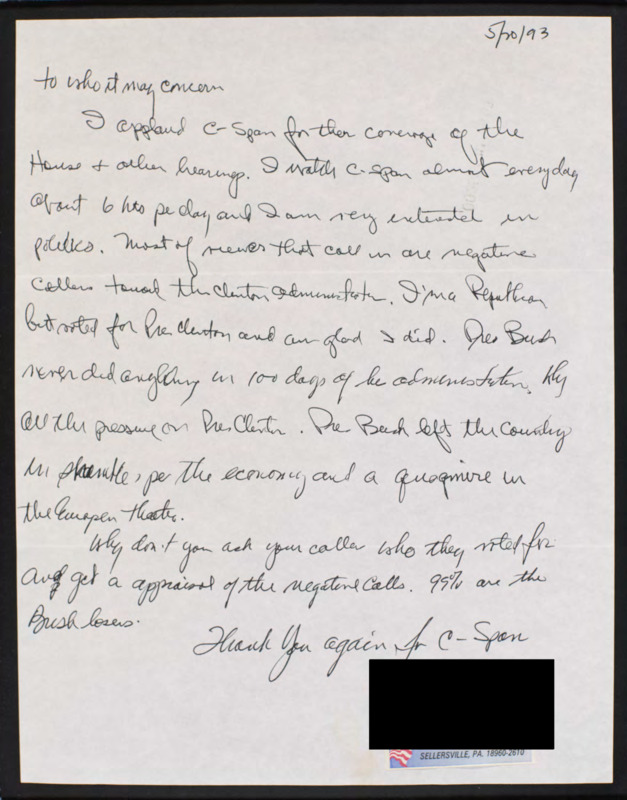 5/20/93
to who it may concern
I applaud C-Span for ther coverage of the
House + other hearings. I watch C-span almost everyday
about 6 hrs pe day and I am very interested in
politics. Most of viewer that call in are negative
callers toward the Clinton administration. I'm a Republican
but voted for Pres Clinton and am glad I did. Pres Bush
never did anything in 100 days of he administration, Why
all the pressure on Pres Clinton. Pres Bush left the country
in shamble, per the economy and a quagmire in
the European theater.
Why don't you ask your caller who they voted for
and get a appraisal of the negative calls. 99% are the
Bush losers.
Thank You again for C-Span
SELLERSVILLE, PA. 18960-2610